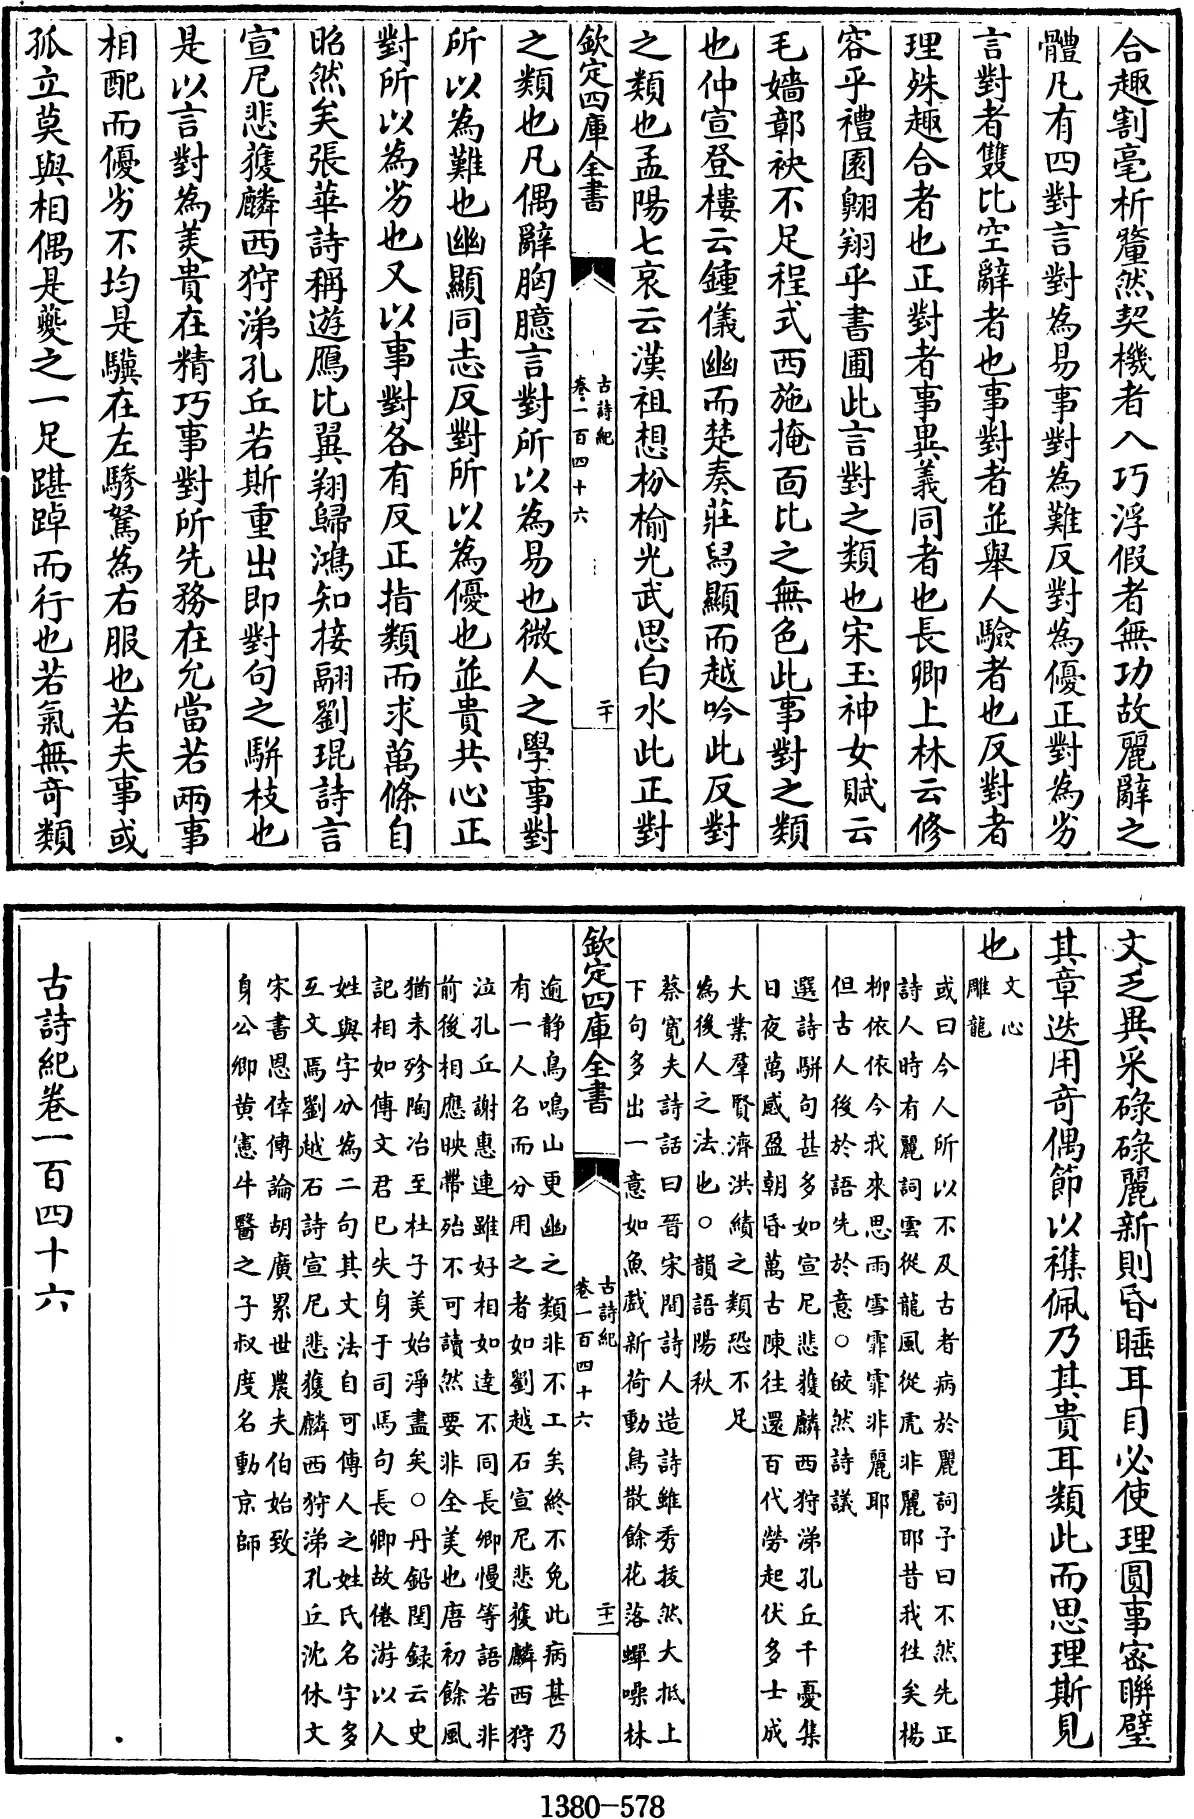 合趣割毫析釐然契機者入巧浮假者無功故麗辭之
體凡有四對言對為易事對為難反對為優正對為劣
言對者雙比空辭者也事對者並舉人驗者也反對者
理殊趣合者也正對者事異義同者也長卿上林云修
容乎禮園翺翔乎書圃此言對之類也宋玉神女賦云
毛嬙鄣袂不足程式西施掩面比之無色此事對之類
也仲宣登樓云鍾儀幽而楚奏莊舄顯而越吟此反對
之類也孟陽七哀云漢祖想枌榆光武思白水此正對
欽定四庫全書
古詩紀
卷一百四十六
二十
之類也凡偶辭胸臆言對所以為易也微人之學事對
所以為難也幽顯同志反對所以為優也並貴共心正
對所以為劣也又以事對各有反正指類而求萬條自
昭然矣張華詩稱遊鴈比翼翔歸鴻知接翮劉琨詩言
宣尼悲獲麟西狩涕孔丘若斯重出即對句之駢枝也
是以言對為美貴在精巧事對所先務在允當若兩事
相配而優劣不均是驥在左驂駑為右服也若夫事或
孤立莫與相偶是夔之一足踸踔而行也若氣無奇類
文乏異采碌碌麗新則昏睡耳目必使理圓事密聯璧
其章迭用奇偶節以襍佩乃其貴耳類此而思理斯見
也
文心
雕龍
或曰今人所以不及古者病於麗詞予曰不然先正
詩人時有麗詞雲從龍風從虎非麗耶昔我往矣楊
柳依依今我來思雨雪霏霏非麗耶
但古人後於語先於意○皎然詩議
選詩駢句甚多如宣尼悲獲麟西狩涕孔丘千憂集
日夜萬感盈朝昏萬古陳往還百代勞起伏多士成
大業羣賢濟洪績之類恐不足
為後人之法也○韻語陽秋
蔡寬夫詩話曰晉宋間詩人造詩雖秀拔然大抵上
下句多出一意如魚戲新荷動鳥散餘花落蟬噪林
欽定四庫全書
古詩紀
卷一百四十六
二十一
逾静鳥鳴山更幽之類非不工矣終不免此病甚乃
有一人名而分用之者如劉越石宣尼悲獲麟西狩
泣孔丘謝惠連雖好相如達不同長卿慢等語若非
前後相應映帶殆不可讀然要非全美也唐初餘風
猶未殄陶冶至杜子美始淨盡矣○丹鉛閏録云史
記相如傳文君已失身于司馬句長卿故倦游以人
姓與字分為二句其文法自可傳人之姓氏名字多
互文焉劉越石詩宣尼悲獲麟西狩涕孔丘沈休文
宋書恩倖傳論胡廣累世農夫伯始致
身公卿黄憲牛醫之子叔度名動京師
古詩紀卷一百四十六
1380-578